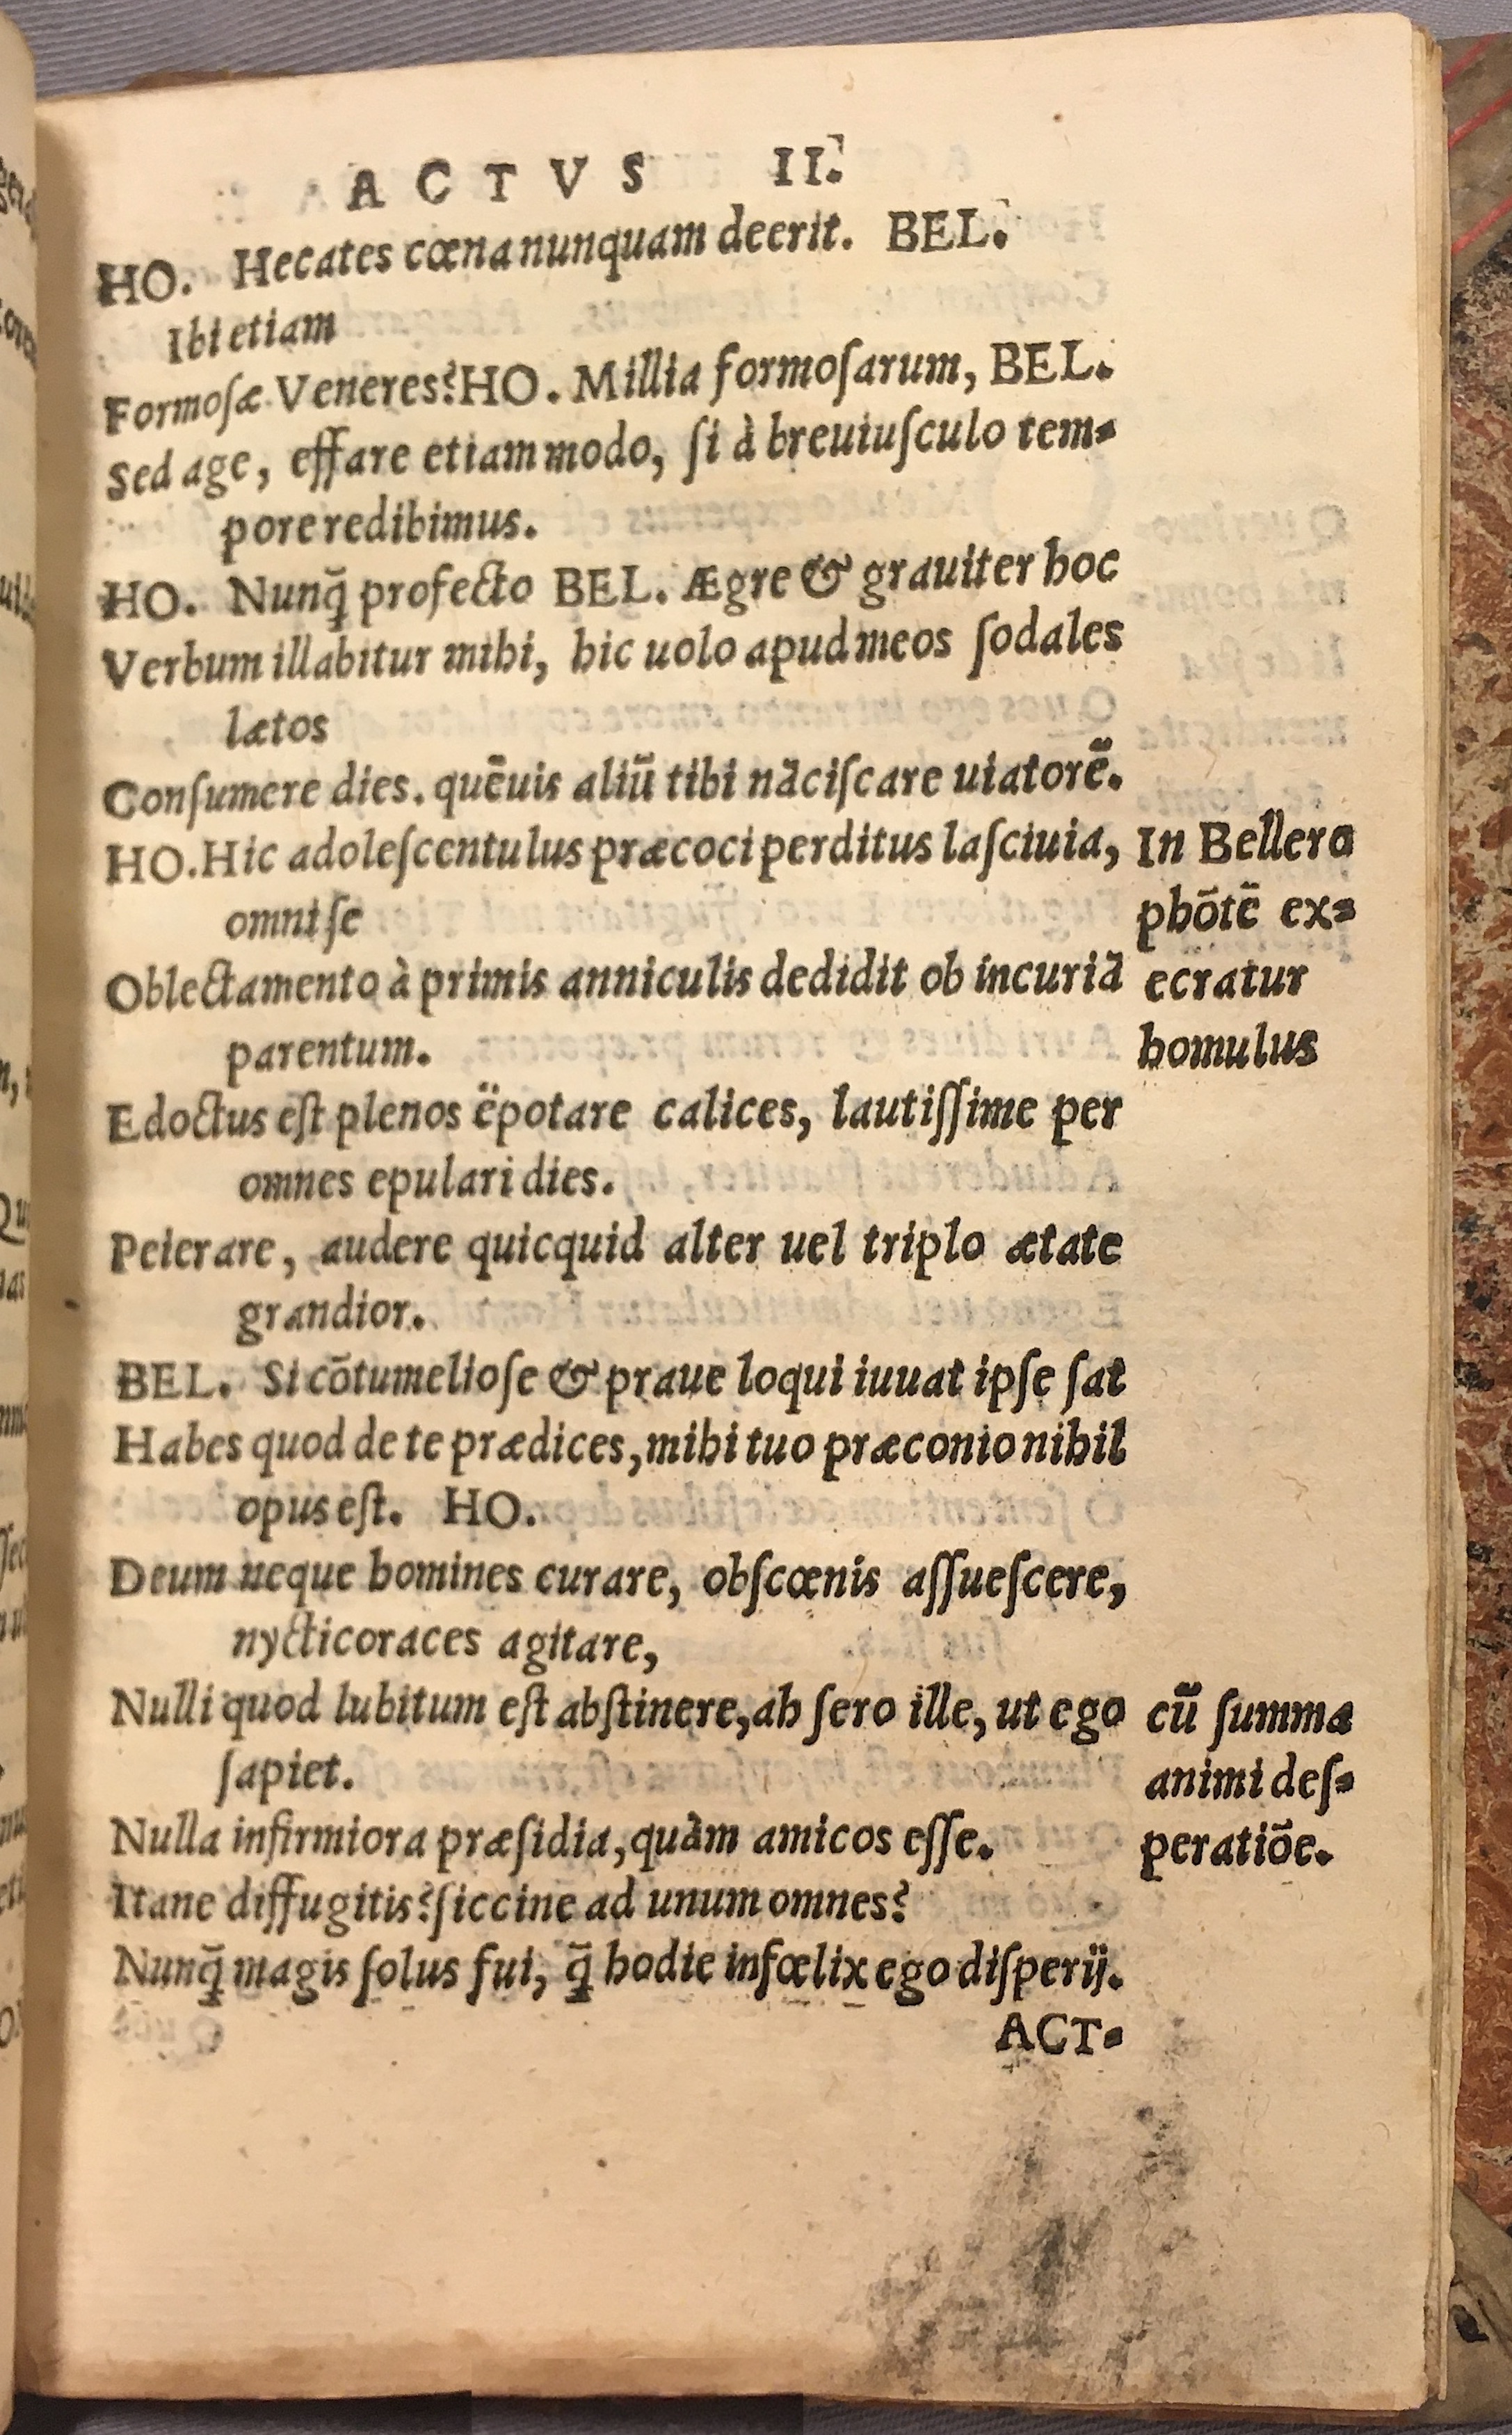 ACTVS II.
HO. Hecates cœna nunquam deerit. BEL.
Ibi etiam
Formoſæ Veneres? HO. Millia formoſarum, BEL.
Sed age, effare etiam modo, ſi à breuiuſculo tem-
pore redibimus.
HO. Nunq̃ profecto BEL. Ægre & grauiter hoc
Verbum illabitur mihi, hic uolo apud meos ſodales
lætos
Conſumere dies. quēuis aliũ tibi nãciſcare uiatorẽ.
HO. Hic adoleſcentulus præcoci perditus laſciuia,
omni ſe
Oblectamento à primis anniculis dedidit ob incuriã
parentum.
Edoctus eſt plenos ëpotare calices, lautiſſime per
omnes epulari dies.
Peierare, audere quicquid alter uel triplo ætate
grandior.
BEL. Si cõtumelioſe & praue loqui iuuat ipſe ſat
Habes quod de te prædices, mihi tuo præconio nihil
opus eſt. HO.
Deum neque homines curare, obſcœnis aſſueſcere,
nycticoraces agitare,
Nulli quod lubitum eſt abſtinere, ah ſero ille, ut ego
ſapiet.
Nulla infirmiora præſidia, quàm amicos eſſe.
Itane diffugitis? ſiccine ad unum omnes?
Nunq̃ magis ſolus fui, q̃ hodie infœlix ego diſperij.
ACT-
In Bellero
phõtẽ ex-
ecratur
homulus
cũ ſumma
animi deſ-
peratiõe.